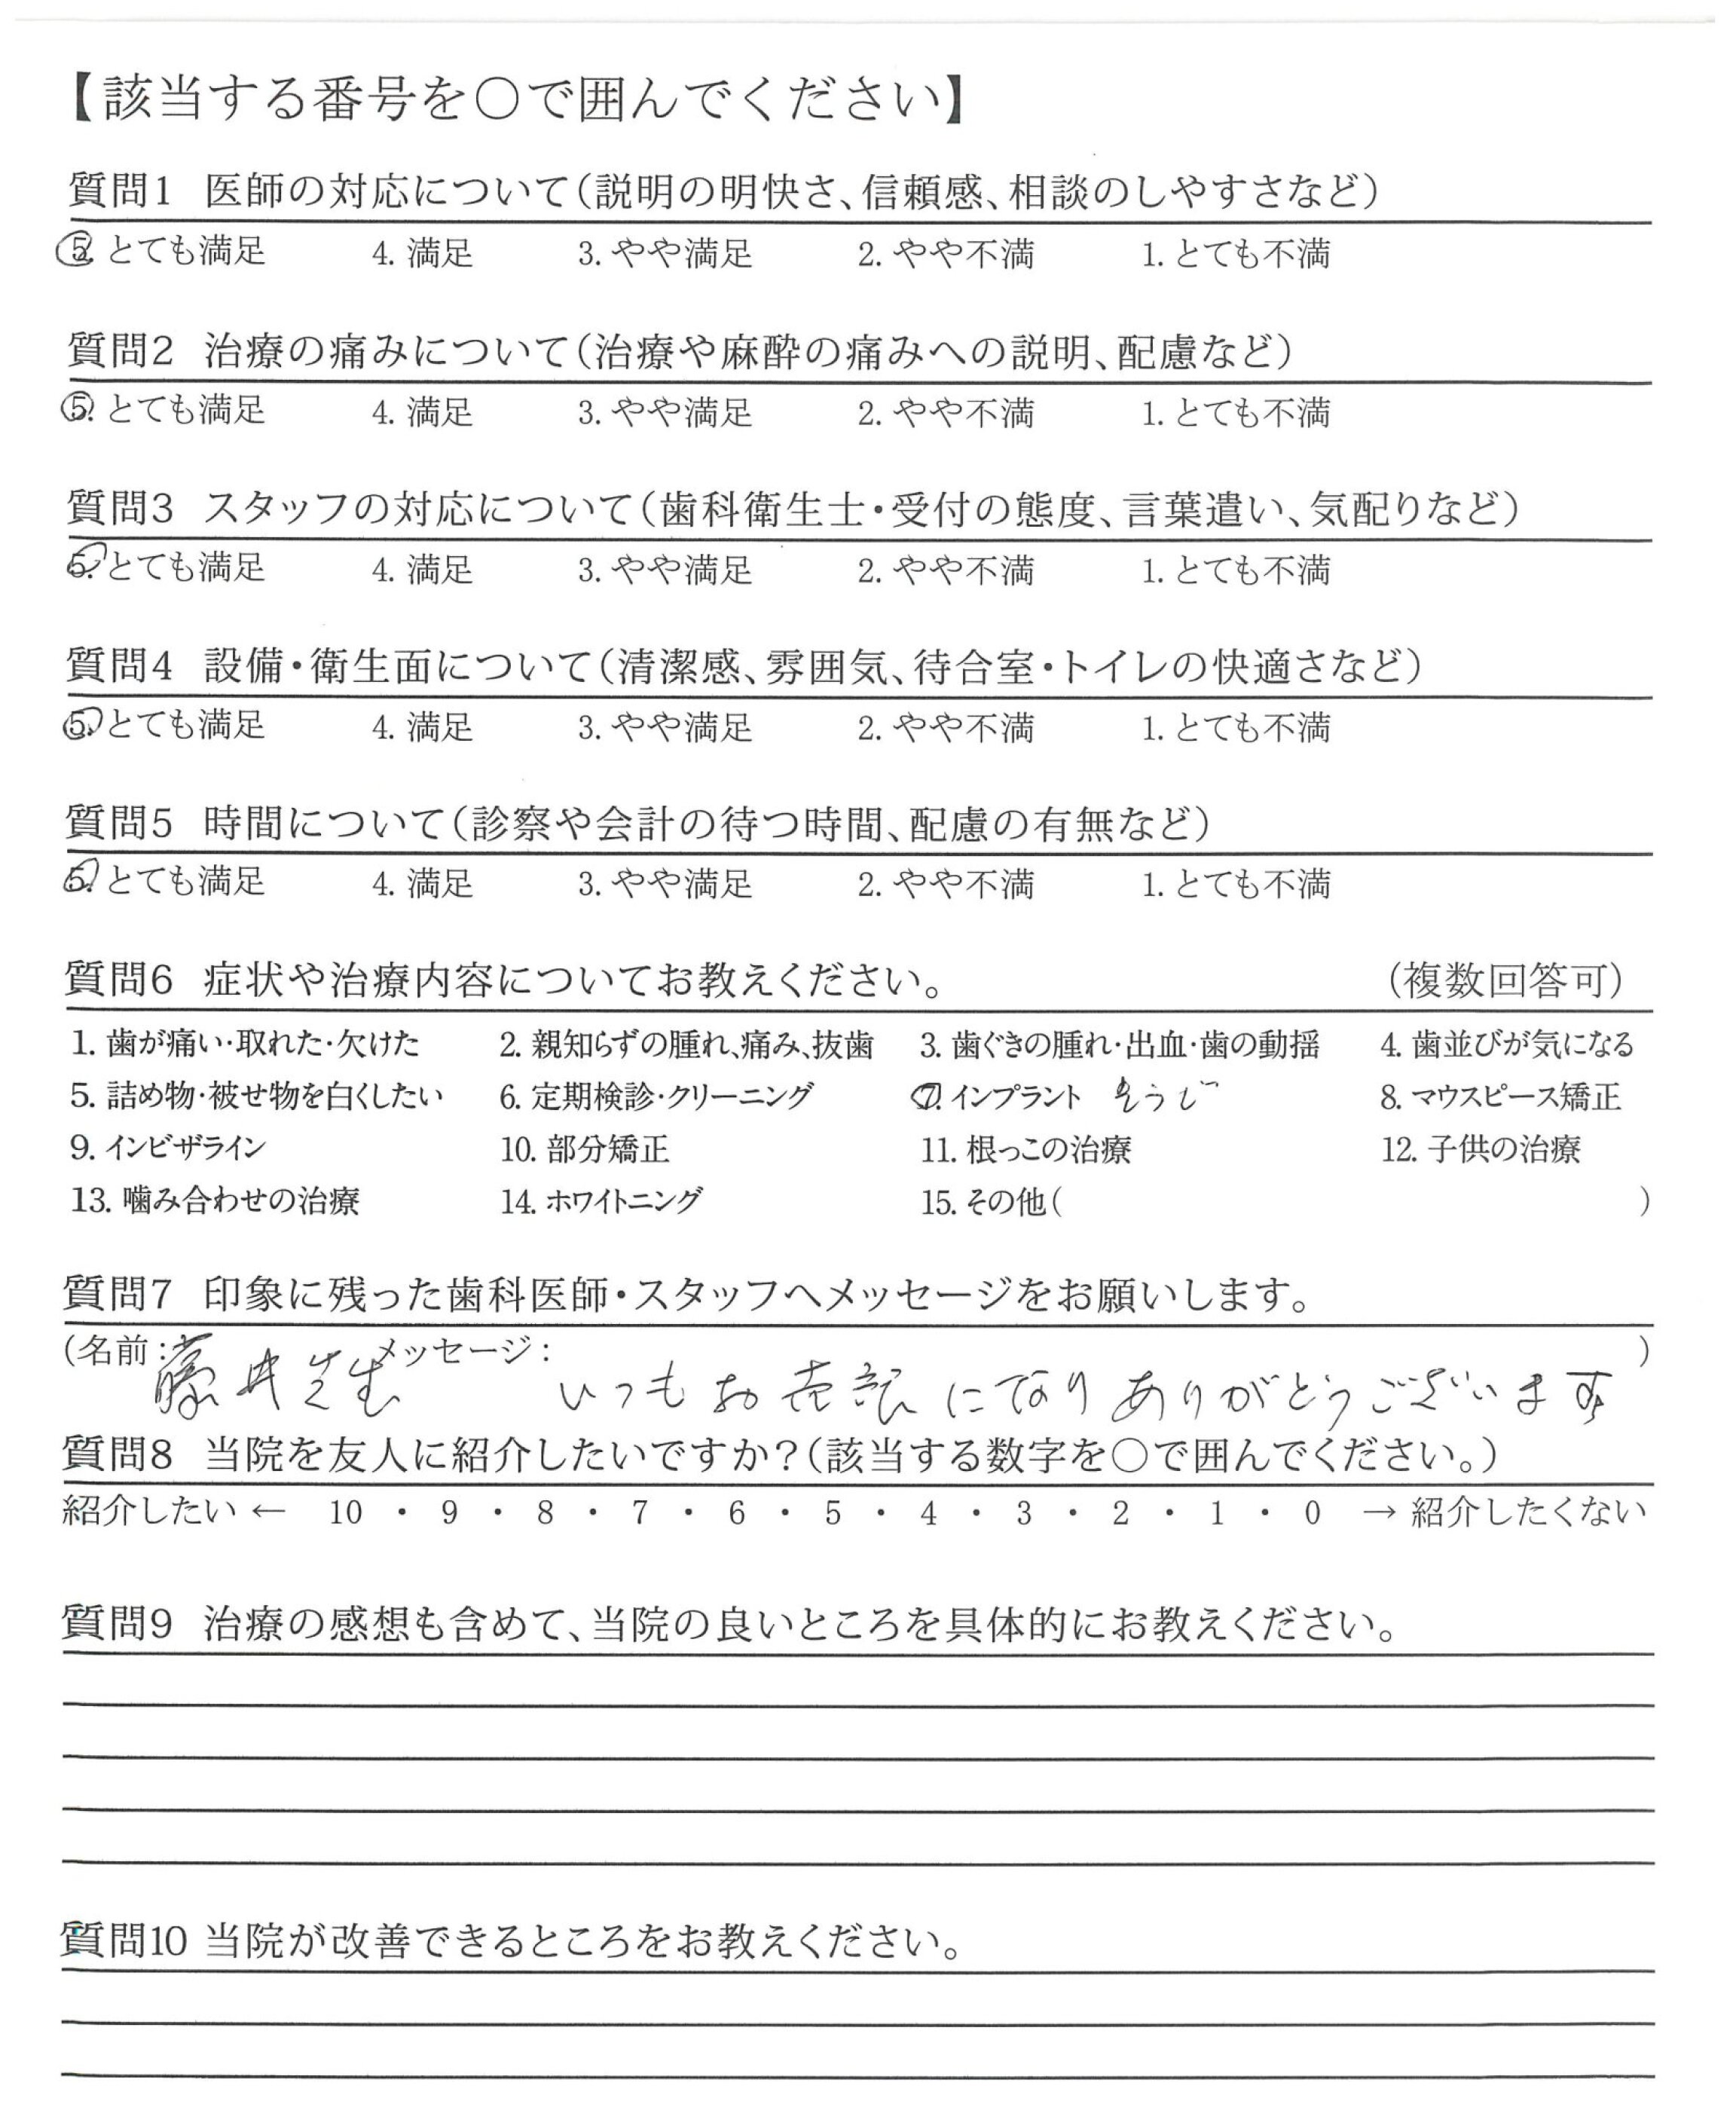 【該当する番号を○で囲んでください】
質問1 医師の対応について(説明の明快さ、信頼感、相談のしやすさなど)
5. とても満足 4. 満足 3. やや満足 2. やや不満 1. とても不満
質問2 治療の痛みについて(治療や麻酔の痛みへの説明、配慮など)
5. とても満足 4. 満足 3. やや満足 2. やや不満 1. とても不満
質問3 スタッフの対応について(歯科衛生士・受付の態度、言葉遣い、気配りなど)
5. とても満足 4. 満足 3. やや満足 2. やや不満 1. とても不満
質問4 設備・衛生面について(清潔感、雰囲気、待合室・トイレの快適さなど)
5. とても満足 4. 満足 3. やや満足 2. やや不満 1. とても不満
質問5 時間について(診察や会計の待つ時間、配慮の有無など)
5. とても満足 4. 満足 3. やや満足 2. やや不満 1. とても不満
質問6 症状や治療内容についてお教えください。 (複数回答可)
1. 歯が痛い・取れた・欠けた 2. 親知らずの腫れ、痛み、抜歯 3. 歯ぐきの腫れ・出血・歯の動揺 4. 歯並びが気になる
5. 詰め物・被せ物を白くしたい 6. 定期検診・クリーニング 7. インプラント そうじ 8. マウスピース矯正
9. インビザライン 10. 部分矯正 11. 根っこの治療 12. 子供の治療
13. 噛み合わせの治療 14. ホワイトニング 15. その他( )
質問7 印象に残った歯科医師・スタッフへメッセージをお願いします。
(名前: 藤井先生 メッセージ: いつもお世話になりありがとうございます )
質問8 当院を友人に紹介したいですか?(該当する数字を○で囲んでください。)
紹介したい ← 10 ・ 9 ・ 8 ・ 7 ・ 6 ・ 5 ・ 4 ・ 3 ・ 2 ・ 1 ・ 0 → 紹介したくない
質問9 治療の感想も含めて、当院の良いところを具体的にお教えください。
質問10 当院が改善できるところをお教えください。